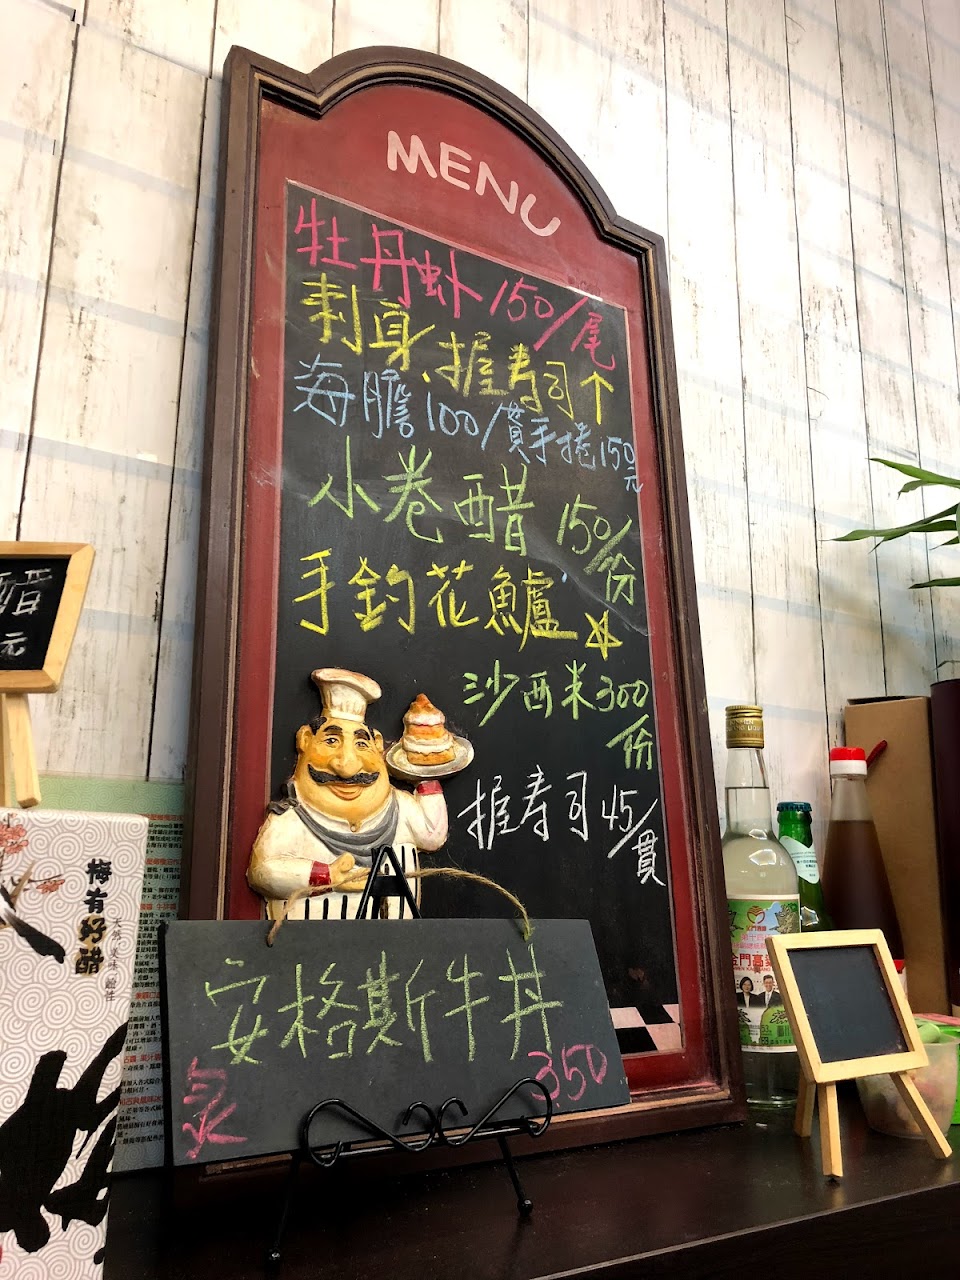 MENU
牡丹蝦150/尾
刺身、握壽司↑
海膽100/貫手捲150元
小卷醋150/份
手釣花鱸☆
沙西米300份
握壽司45/貫
安格斯牛丼
炙 350
醋
元
梅有好醋
金門高粱